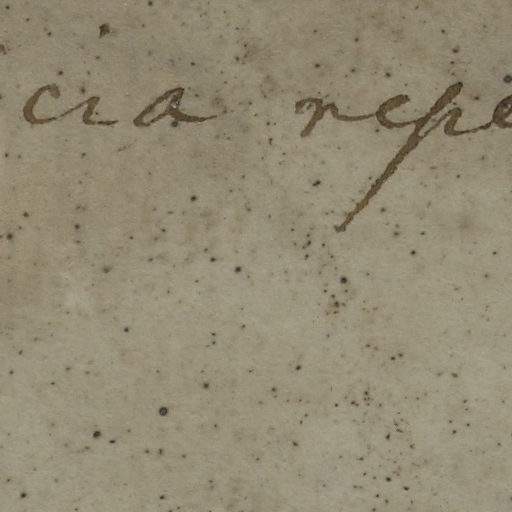 cia repe